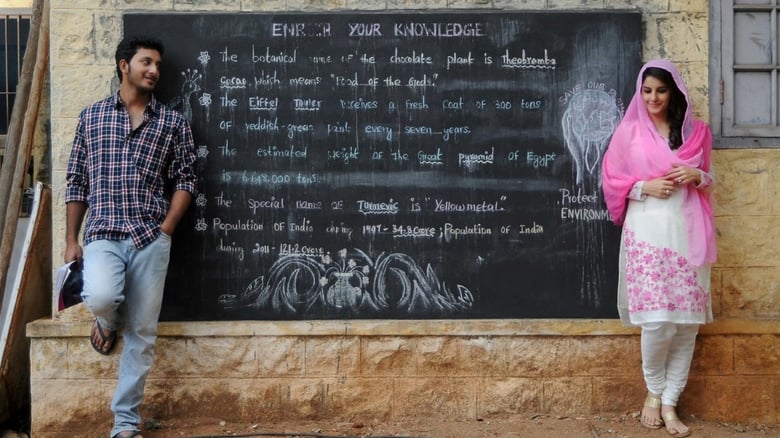 ENRICH YOUR KNOWLEDGE
The botanical name of the chocolate plant is Theobramba
Cacao, which means "Food of the Gods".
The Eiffel Tower receives a fresh coat of 300 tons
of reddish-green paint every seven years.
The estimated weight of the Great pyramid of Egypt
is 6,648,000 tons.
The special name of Turmeric is "Yellow metal."
Population of India during 1947 - 34.8 Crore; Population of India
during 2011 - 121.2 Crore.
SAVE OUR
Protect
ENVIRONMENT